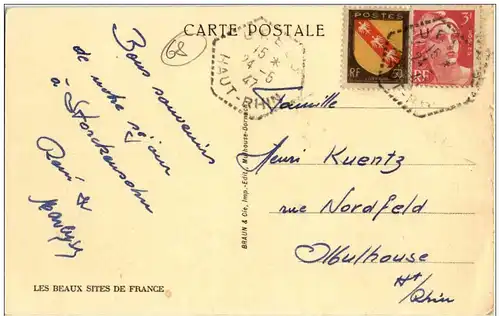 CARTE POSTALE
68
15 *
24-6
47
HAUT-RHIN
POSTES
RF
3F
RF
Bons souvenirs
de notre séjour
à Storckensohn
René &
Famille
Henri Kuentz
rue Nordfeld
Mulhouse
Ht
Rhin
BRAUN & Cie, Imp.-Edit., Mulhouse-Dornach
LES BEAUX SITES DE FRANCE